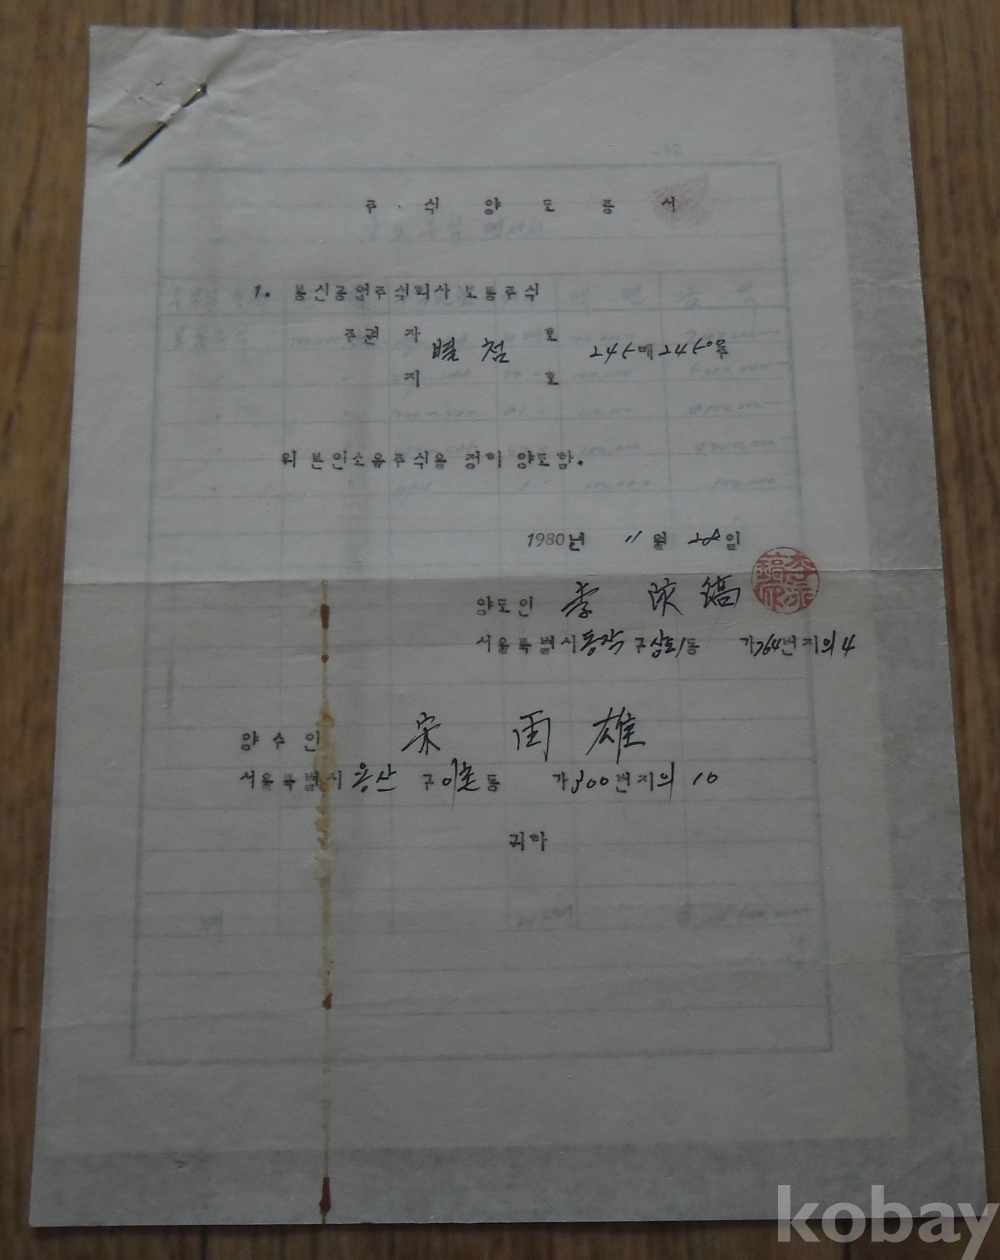 주식양도증서
1. 봉신공업주식회사 보통주식
주권 자 호
별첨 245매 2450주
지 호
위 본인소유주식을 정히 양도함.
1980년 11월 28일
양도인 李 鎬
서울특별시 동작구 상도1동 가 764번지의 4
양수인 宋 雨 雄
서울특별시 용산구 이촌동 가 300번지의 10
귀하
kobay